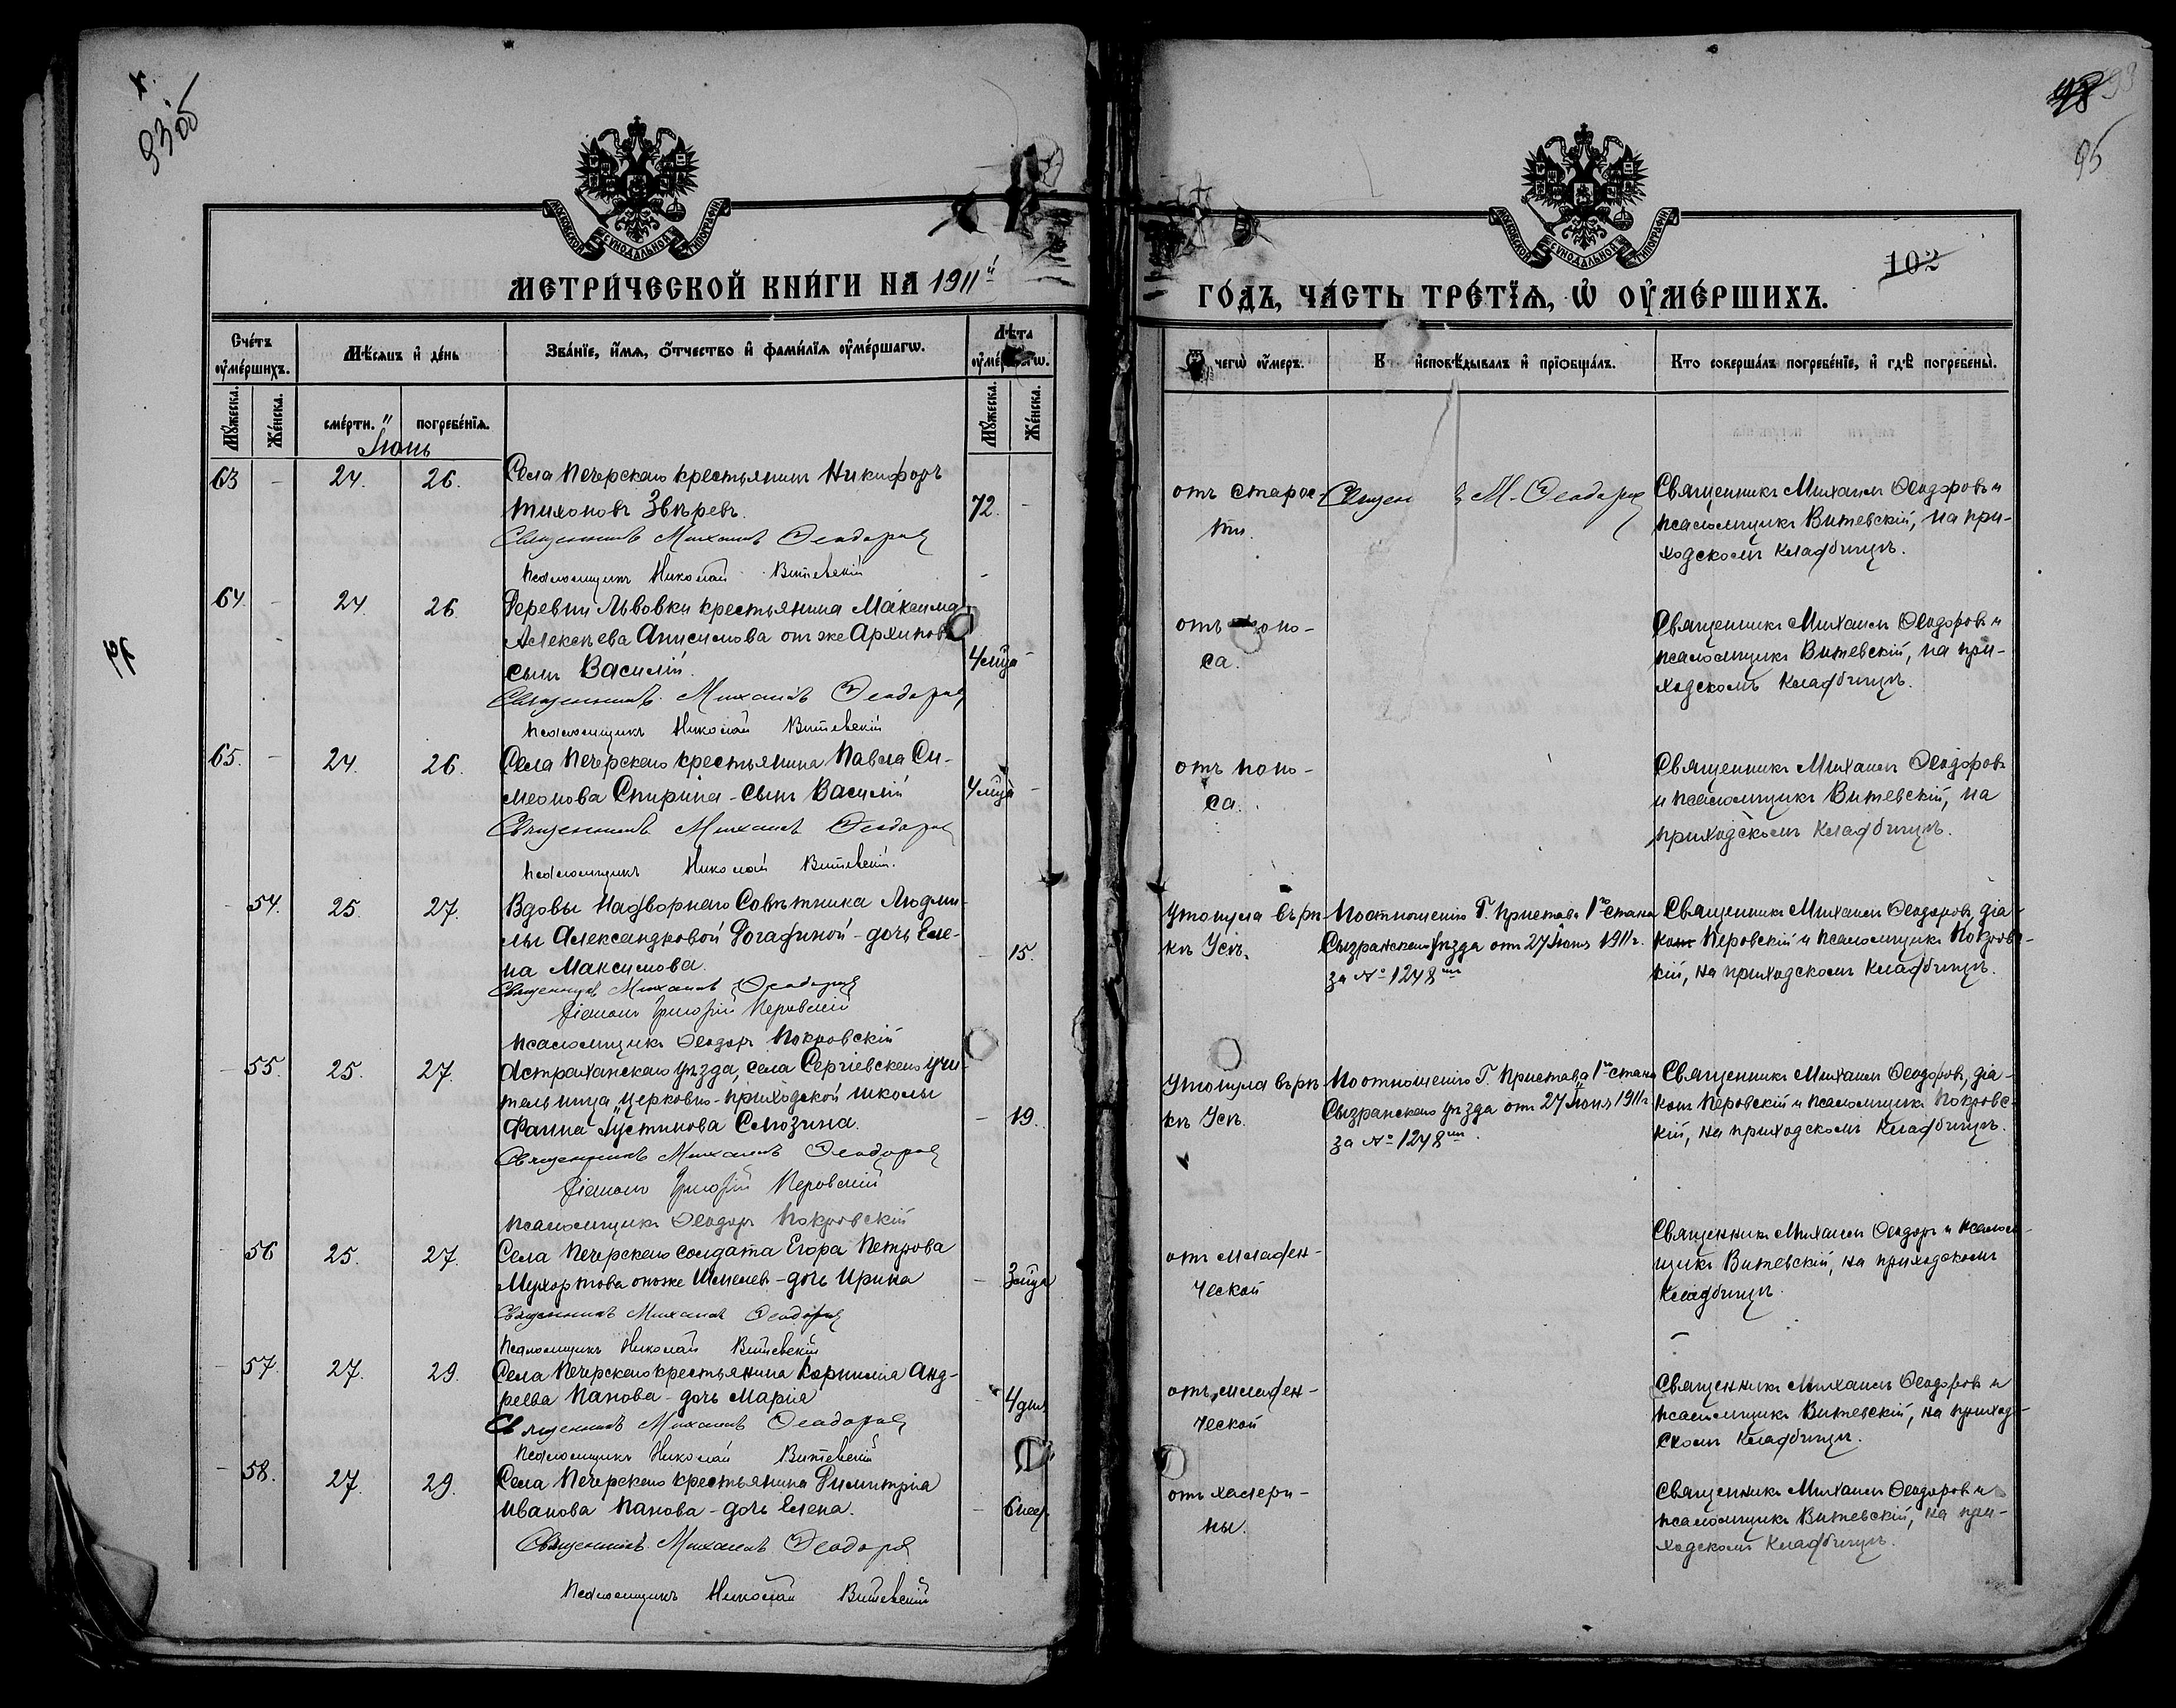 93об
98 93
95
МОСКОВСКОЙ СѴНОДАЛЬНОЙ ТИПОГРАФІИ
МОСКОВСКОЙ СѴНОДАЛЬНОЙ ТИПОГРАФІИ
102
МЕТРИ́ЧЕСКОЙ КНИ́ГИ НА 1911й
ГО́ДЪ, ЧА́СТЬ ТРЕ́ТЇѦ, Ѡ҆ ОУ҆МЕ́РШИХЪ.
Счётъ оу҆ме́ршихъ.
Мѣ́сѧцъ и҆ де́нь
Зва́нїе, и҆́мѧ, ѻ҆́тчество и҆ фами́лїѧ оу҆ме́ршагѡ.
Лѣ́та оу҆ме́ршагѡ.
Ѿ чегѡ̀ оу҆́меръ.
К и҆сповѣ́дывалъ и҆ прїѡбща́лъ.
Кто соверша́лъ погребе́нїе, и҆ гдѣ̀ погребены̀.
Мꙋ́жеска.
Же́нска.
сме́рти.
погребе́нїѧ.
Мꙋ́жеска.
Же́нска.
Іюнь
63 - 24. 26. Села Печерскаго крестьянинъ Никифоръ
Тихоновъ Звѣревъ. 72. -
Священникъ Михаилъ Ѳеодоровъ
Псаломщикъ Николай Витевскій
отъ старос-
ти.
Священ ъ М. Ѳеодоровъ
Священникъ Михаилъ Ѳеодоровъ и
псаломщикъ Витевскій, на при-
ходскомъ кладбищѣ.
64. - 24. 26 Деревни Львовки крестьянина Максима
Алексѣева Анисимова онъ же Архипов
сынъ Василій. 4 мѣца -
Священникъ Михаилъ Ѳеодоровъ
Псаломщикъ Николай Витевскій
отъ поно-
са.
Священникъ Михаилъ Ѳеодоровъ и
псаломщикъ Витевскій, на при-
ходскомъ кладбищѣ.
65. - 24. 26. Села Печерскаго крестьянина Павла Си-
меонова Спирина - сынъ Василій 4 мѣца -
Священникъ Михаилъ Ѳеодоровъ
Псаломщикъ Николай Витевскій.
отъ поно-
са.
Священникъ Михаилъ Ѳеодоровъ
и псаломщикъ Витевскій, на
приходскомъ кладбищѣ.
- 54. 25. 27. Вдовы Надворнаго Совѣтника Людми-
лы Александровой Рогадиной - дочь Еле-
на Максимова. - 15.
Священникъ Михаилъ Ѳеодоровъ
Діаконъ Григорій Перовскій
Псаломщикъ Ѳеодоръ Покровскій
Утонула въ рѣ-
кѣ Усѣ.
По отношенію Г. Пристава 1го стана
Сызранскаго уѣзда отъ 27 Іюня 1911 г.
за № 1248мъ
Священникъ Михаилъ Ѳеодоровъ, діа-
конъ Перовскій и псаломщикъ Покровс-
кій, на приходскомъ кладбищѣ.
- 55. 25. 27. Астраханскаго уѣзда, села Сергіевскаго учи-
тельница церковно-приходской школы
Фаина Іустинова Слюзина. - 19.
Священникъ Михаилъ Ѳеодоровъ
Діаконъ Григорій Перовскій
Псаломщикъ Ѳеодоръ Покровскій
Утонула въ рѣ-
кѣ Усѣ.
По отношенію Г. Пристава 1го стана
Сызранскаго уѣзда отъ 27 Іюня 1911 г.
за № 1248мъ.
Священникъ Михаилъ Ѳеодоровъ, діа-
конъ Перовскій и псаломщикъ Покровс-
кій, на приходскомъ кладбищѣ.
- 56 25. 27. Села Печерскаго солдата Егора Петрова
Мухортова онъ же - дочь Ирина - 3 мѣца
Священникъ Михаилъ Ѳеодоровъ
Псаломщикъ Николай Витевскій
отъ младен-
ческой
Священникъ Михаилъ Ѳеодоръ и псалом-
щикъ Витевскій, на приходскомъ
кладбищѣ.
- 57. 27. 29. Села Печерскаго крестьянина Корнилія Анд-
реева Панова - дочь Марія - 4 дн.
Священникъ Михаилъ Ѳеодоровъ
Псаломщикъ Николай Витевскій
отъ младен-
ческой
Священникъ Михаилъ Ѳеодоровъ и
псаломщикъ Витевскій, на приход-
скомъ кладбищѣ.
- 58. 27. 29. Села Печерскаго крестьянина Димитрія
Иванова Панова - дочь Елена. - 6 нед.
Священникъ Михаилъ Ѳеодоровъ
Псаломщикъ Николай Витевскій
отъ холери-
ны.
Священникъ Михаилъ Ѳеодоровъ и
псаломщикъ Витевскій, на при-
ходскомъ кладбищѣ.